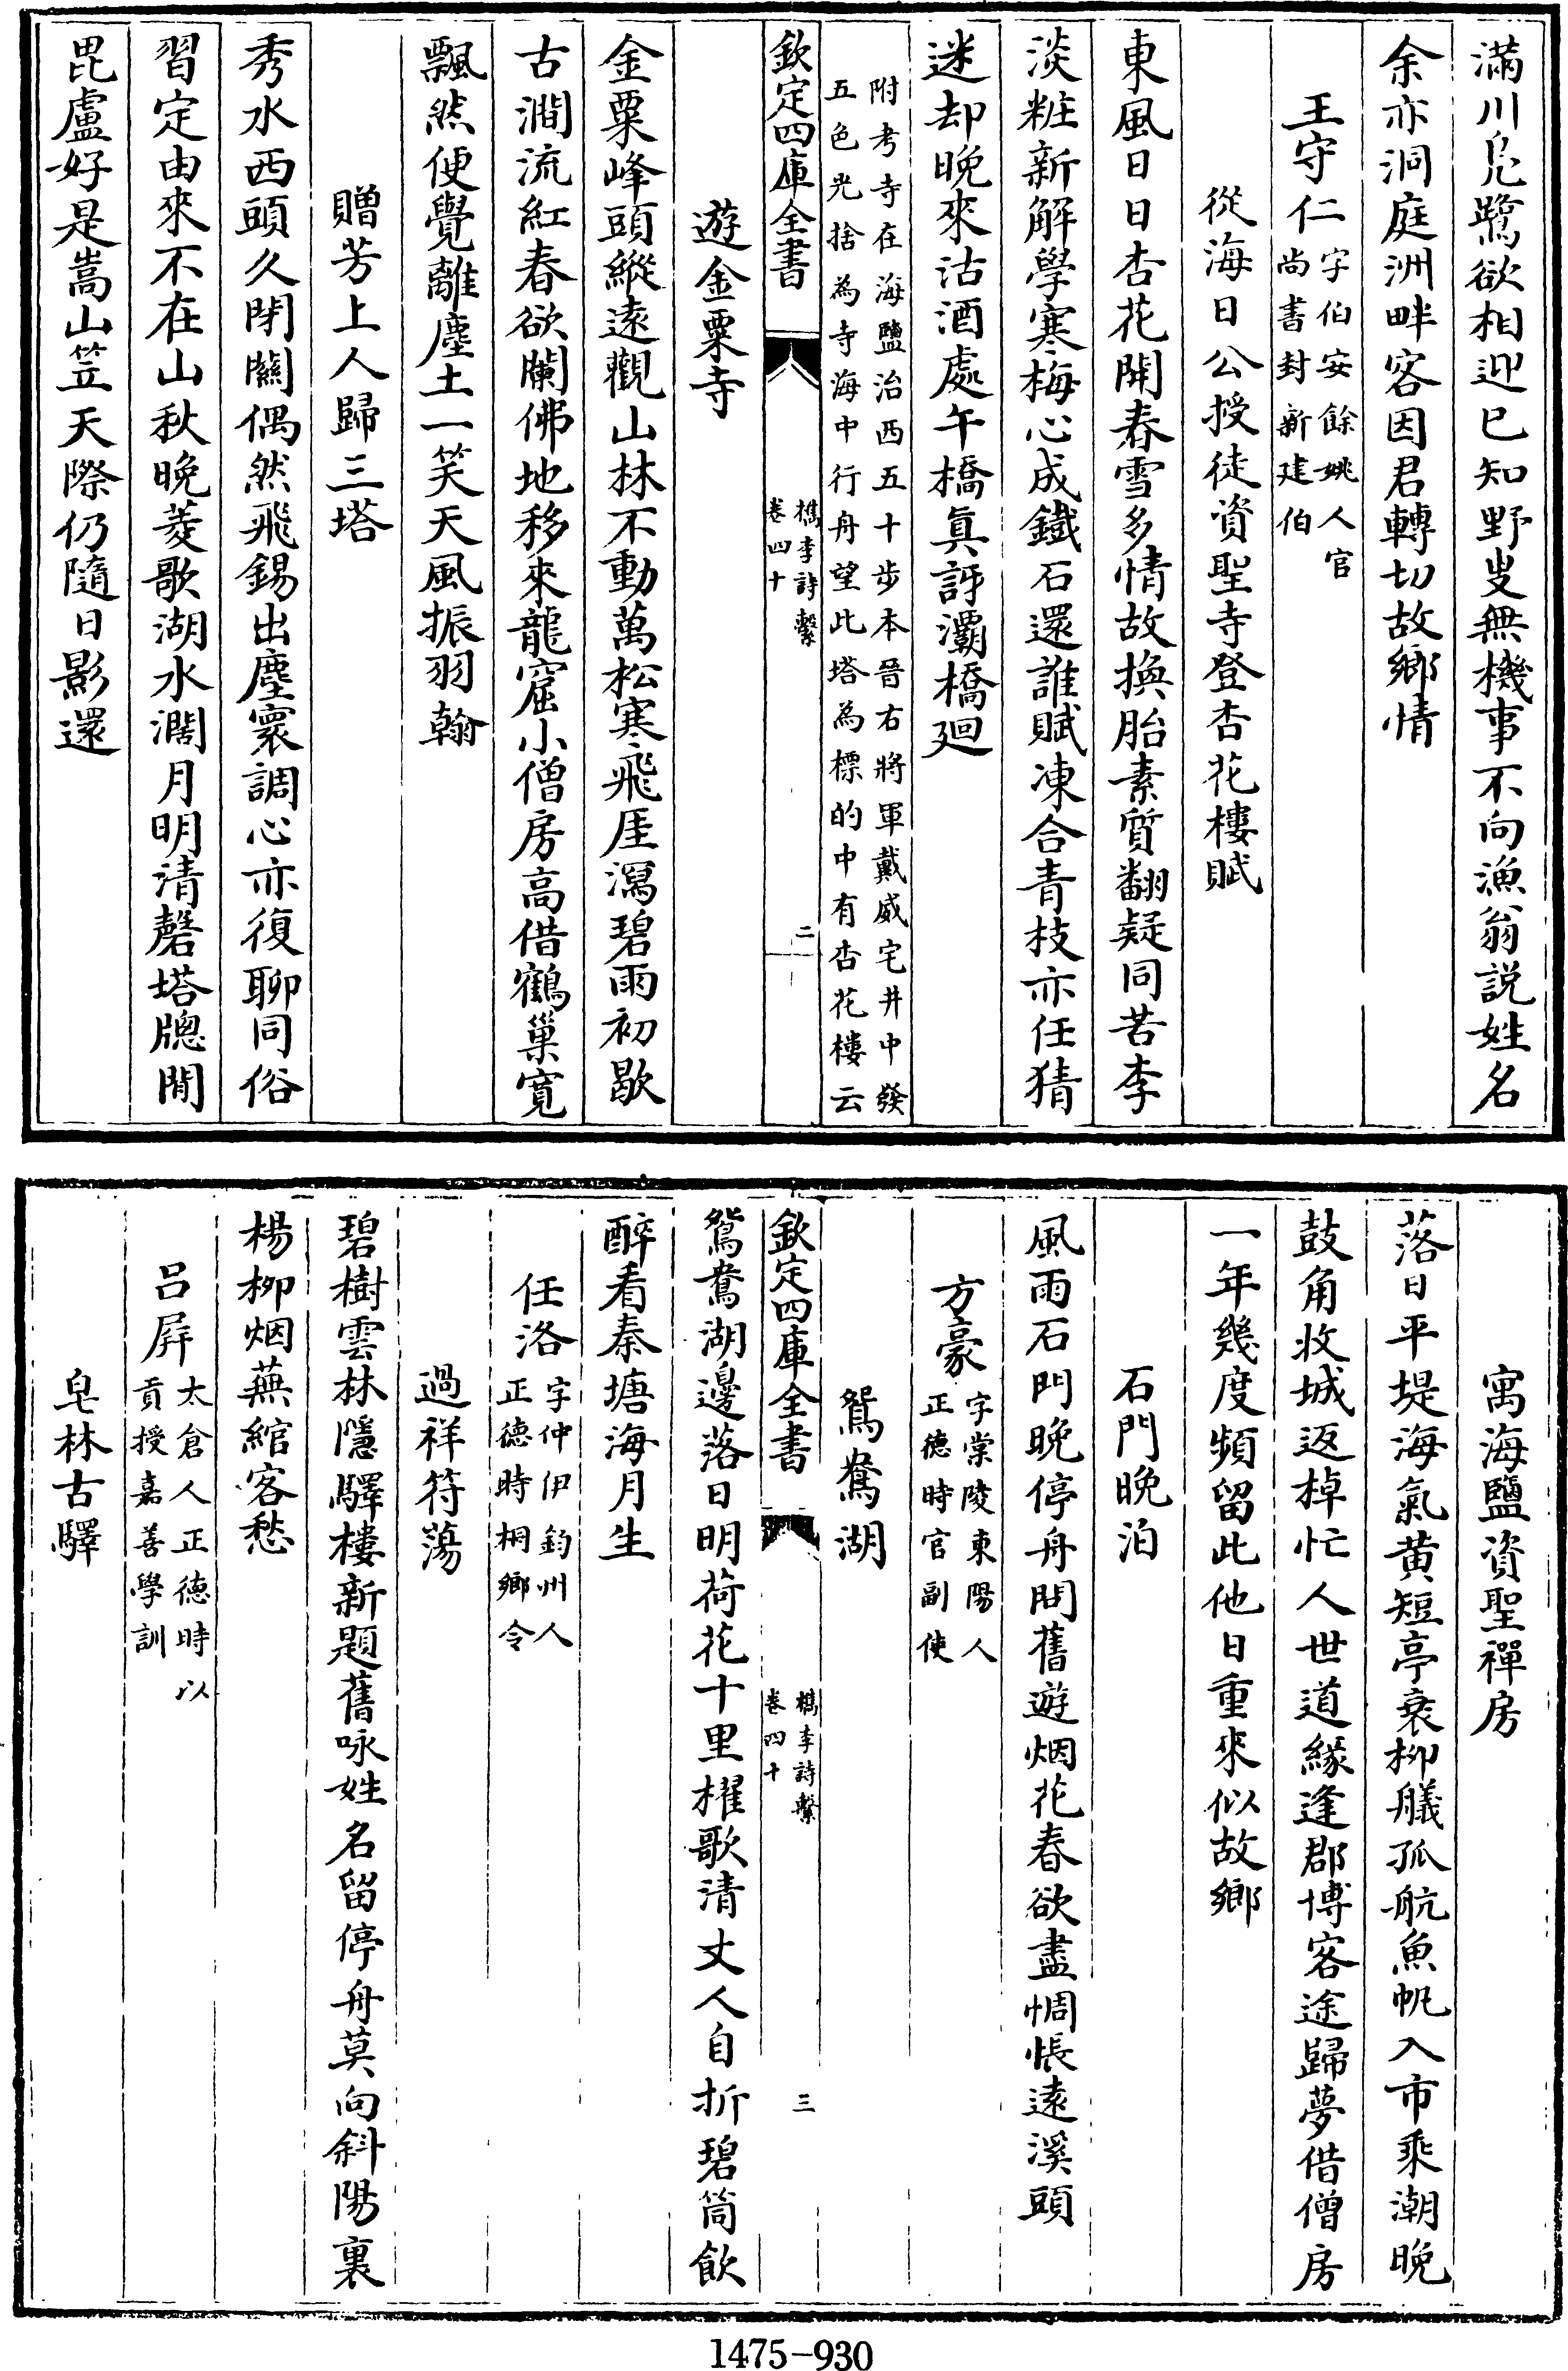 滿川鳧鷺欲相迎已知野叟無機事不向漁翁説姓名
余亦洞庭洲畔客因君轉切故鄉情
王守仁字伯安餘姚人官
尚書封新建伯
從海日公授徒資聖寺登杏花樓賦
東風日日杏花開春雪多情故換胎素質翻疑同苦李
淡粧新解學寒梅心成鐵石還誰賦凍合青枝亦任猜
迷却晚來沽酒處午橋真訝灞橋廻
附考寺在海鹽治西五十步本晉右將軍戴威宅井中發
五色光捨為寺海中行舟望此塔為標的中有杏花樓云
欽定四庫全書
檇李詩繫
卷四十
二
遊金粟寺
金粟峰頭縱遠觀山林不動萬松寒飛厓瀉碧雨初歇
古澗流紅春欲闌佛地移來龍窟小僧房高借鶴巢寬
飄然便覺離塵土一笑天風振羽翰
贈芳上人歸三塔
秀水西頭久閉關偶然飛錫出塵寰調心亦復聊同俗
習定由來不在山秋晚菱歌湖水濶月明清磬塔牕閒
毘盧好是嵩山笠天際仍隨日影還
寓海鹽資聖禪房
落日平堤海氣黄短亭衰柳艤孤航魚帆入市乘潮晚
鼓角收城返棹忙人世道緣逢郡博客途歸夢借僧房
一年幾度頻留此他日重來似故鄉
石門晚泊
風雨石門晚停舟問舊遊烟花春欲盡惆悵遠溪頭
方豪字棠陵東陽人
正德時官副使
鴛鴦湖
欽定四庫全書
檇李詩繫
卷四十
三
鴛鴦湖邊落日明荷花十里櫂歌清丈人自折碧筒飲
醉看秦塘海月生
任洛字仲伊鈞州人
正德時桐鄉令
過祥符蕩
碧樹雲林隱驛樓新題舊咏姓名留停舟莫向斜陽裏
楊柳烟蕪綰客愁
呂屏太倉人正德時以
貢授嘉善學訓
皂林古驛
1475-930